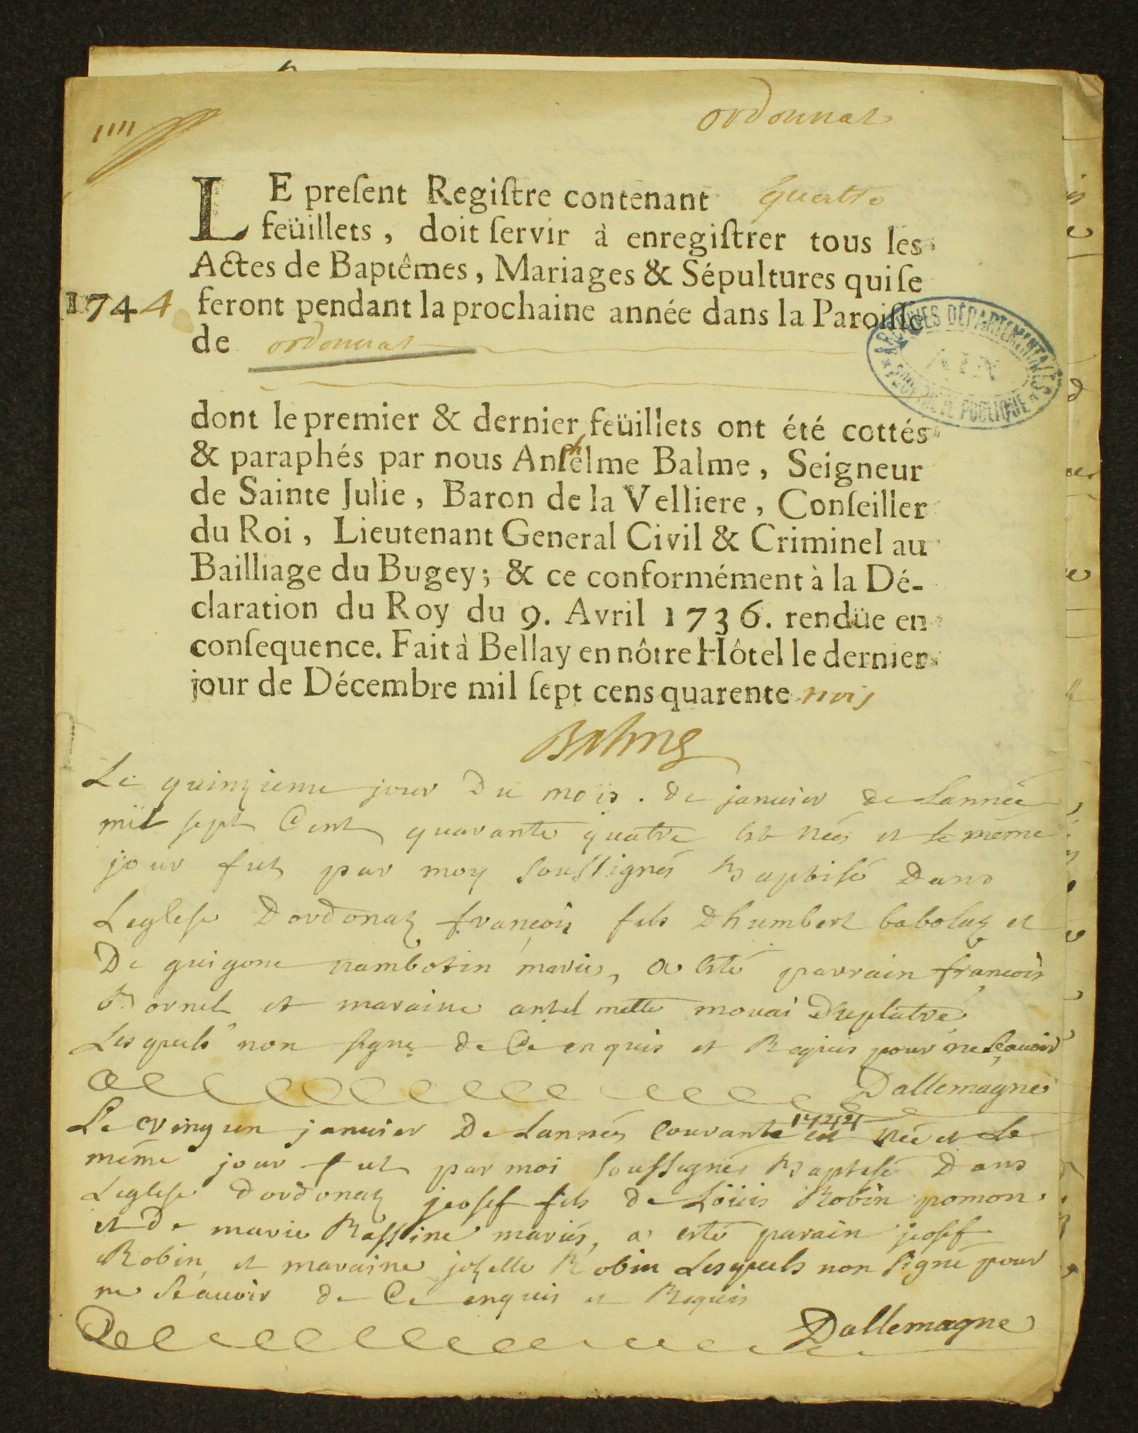 ordonnat
LE present Registre contenant quattre
feüillets, doit servir à enregistrer tous les
Actes de Baptêmes, Mariages & Sépultures qui se
1744 feront pendant la prochaine année dans la Paroisse
de ordonnat
ARCHIVES DÉPARTEMENTALES
AIN
PROPRIÉTÉ PUBLIQUE
dont le premier & dernier feüillets ont été cottés
& paraphés par nous Anselme Balme, Seigneur
de Sainte Julie, Baron de la Velliere, Conseiller
du Roi, Lieutenant General Civil & Criminel au
Bailliage du Bugey; & ce conformément à la Dé-
claration du Roy du 9. Avril 1736. rendüe en
consequence. Fait à Bellay en nôtre Hôtel le dernier
jour de Décembre mil sept cens quarente trois
Balme
Le quinzieme jour Du mois de janvier de Lannée
mil sept Cent quarante quatre est née et le méme
jour fut par moy soussignés Baptisé Dans
Leglese Dordonaz françois fils Dhumbert babolaz et
De guigone nambotin mariés, a esté parrain françois
bornet et maraine antelmette
Lesquels non signe de Ce enquis et Requis pour ne scavoir
Dallemagne
Le vingt un janvier De Lannés Courante 1744 est née et Le
méme jour fut par moi soussignés Baptisé Dans
Leglese dordonaz josef fils de Loüis Robin pomon
et De marie Rassine mariés, a esté parain josef
Robin et maraine Robin Lesquels non signé pour
ne scavoir de Ce enquis et Requis
Dallemagne